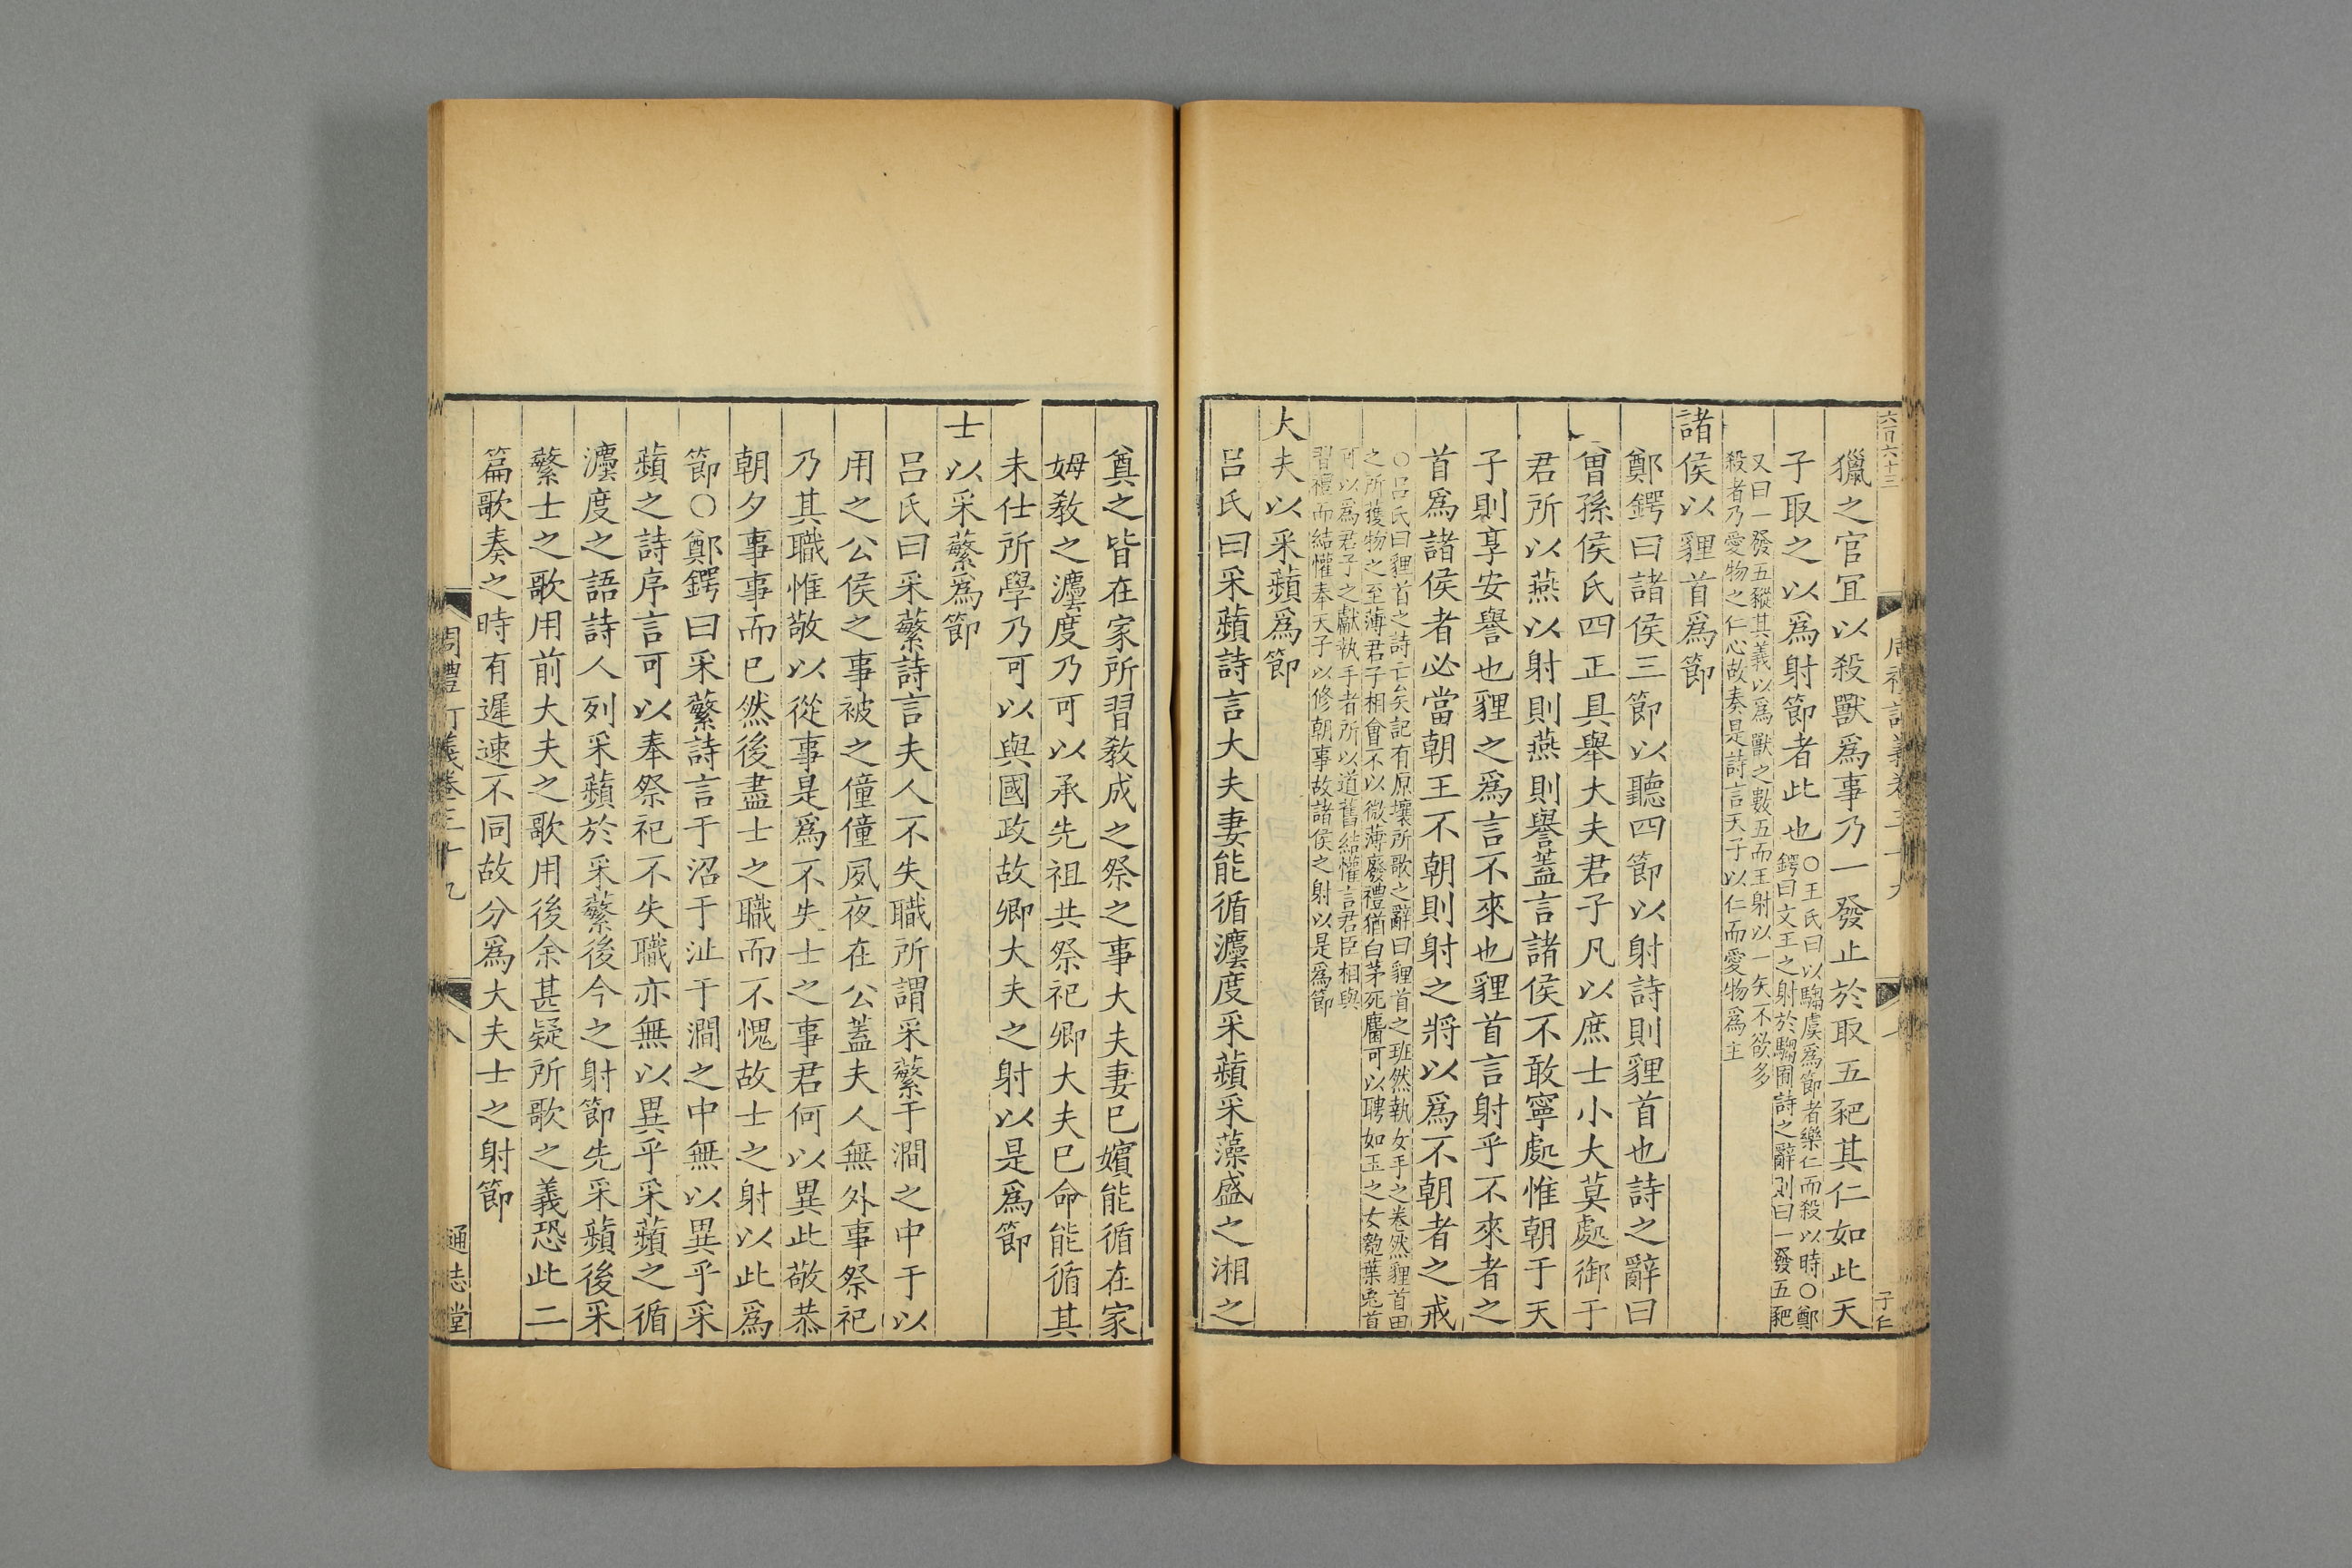 六百六十三
周禮訂義卷三十九 七 子仁
獵之官冝以殺獸爲事乃一發止於取五豝其仁如此天
子取之以爲射節者此也○王氏曰以騶虞爲節者樂仁而殺以時○鄭
鍔曰文王之射於騶囿詩之辭則曰一發五豝
又曰一發五豵其義以爲獸之數五而王射以一矢不欲多
殺者乃愛物之仁心故奏是詩言天子以仁而愛物爲主
諸侯以貍首爲節
鄭鍔曰諸侯三節以聽四節以射詩則貍首也詩之辭曰
曾孫侯氏四正具舉大夫君子凡以庶士小大莫處御于
君所以燕以射則燕則譽蓋言諸侯不敢寧處惟朝于天
子則享安譽也貍之爲言不來也貍首言射乎不來者之
首爲諸侯者必當朝王不朝則射之將以爲不朝者之戒
○呂氏曰貍首之詩亡矣記有原壤所歌之辭曰貍首之班然執女手之卷然貍首田
之所獲物之至薄君子相會不以微薄廢禮猶白茅死麕可以聘如玉之女匏葉兎首
可以爲君子之獻執手者所以道舊結懽言君臣相與
習禮而結懽奉天子以修朝事故諸侯之射以是爲節
大夫以采蘋爲節
呂氏曰采蘋詩言大夫妻能循灋度采蘋采藻盛之湘之
奠之皆在家所習敎成之祭之事大夫妻巳嬪能循在家
姆敎之灋度乃可以承先祖共祭祀卿大夫巳命能循其
未仕所學乃可以與國政故卿大夫之射以是爲節
士以采蘩爲節
呂氏曰采蘩詩言夫人不失職所謂采蘩于澗之中于以
用之公侯之事被之僮僮夙夜在公蓋夫人無外事祭祀
乃其職惟敬以從事是爲不失士之事君何以異此敬恭
朝夕事事而已然後盡士之職而不愧故士之射以此爲
節○鄭鍔曰采蘩詩言于沼于沚于澗之中無以異乎采
蘋之詩序言可以奉祭祀不失職亦無以異乎采蘋之循
灋度之語詩人列采蘋於采蘩後今之射節先采蘋後采
蘩士之歌用前大夫之歌用後余甚疑所歌之義恐此二
篇歌奏之時有遲速不同故分爲大夫士之射節
周禮訂義卷三十九 八 通志堂